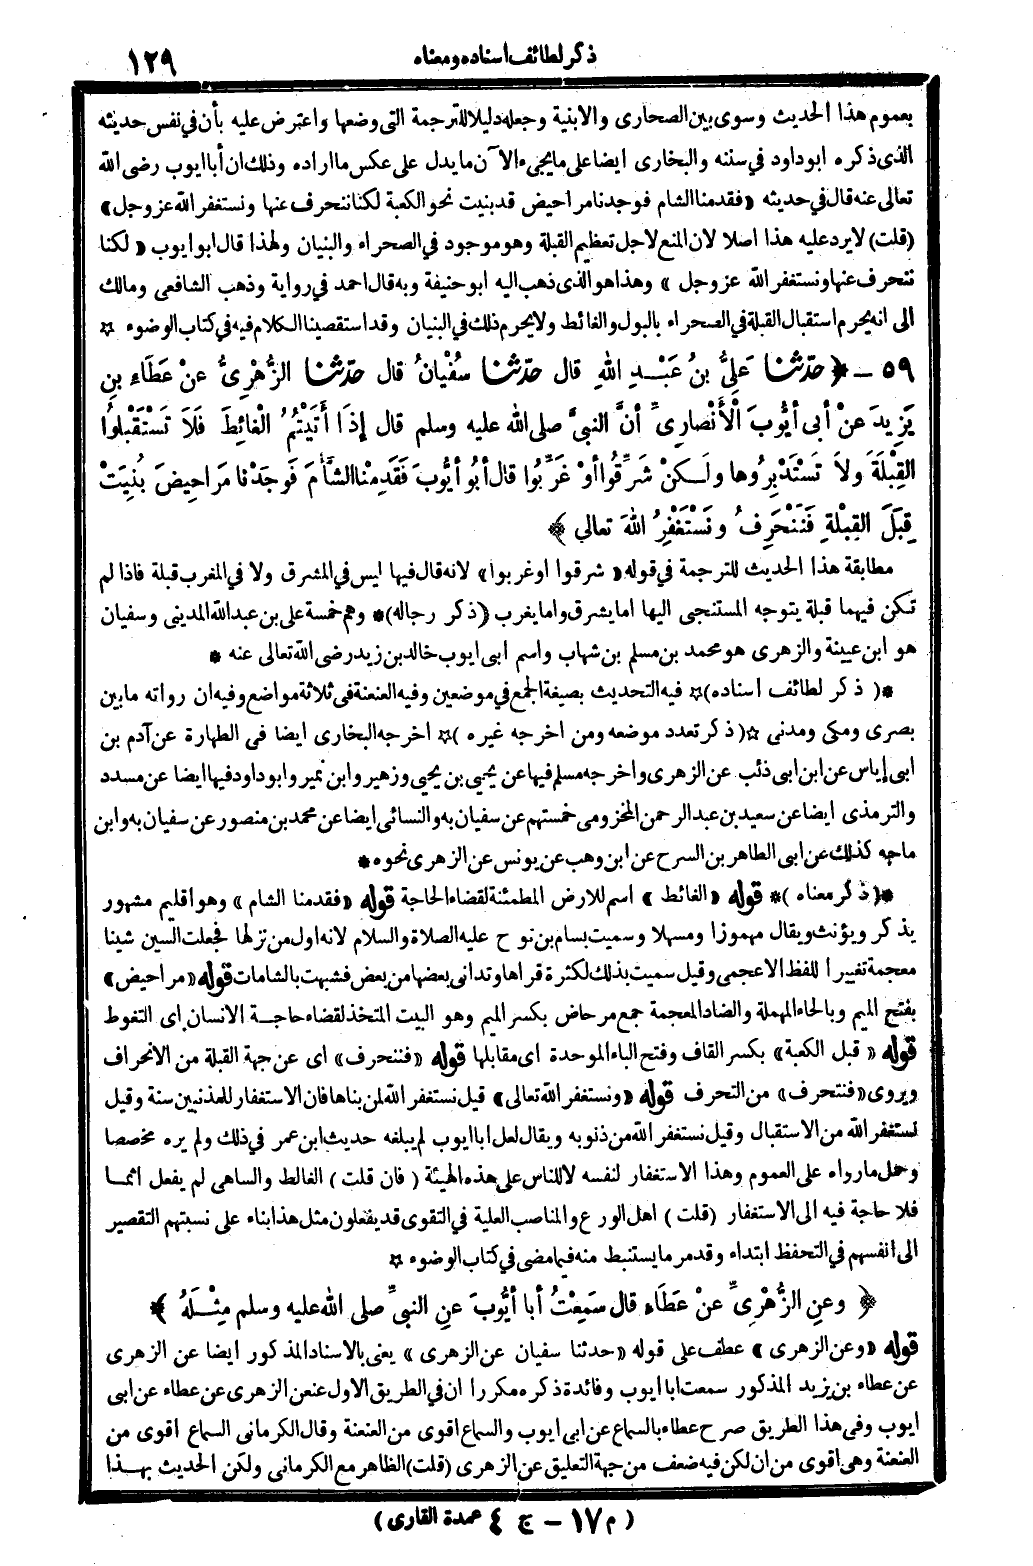 ذكر لطائف اسناده ومعناه
١٢٩
بعموم هذا الحديث وسوى بين الصحارى والابنية وجعله دليلا للترجمة التى وضعها واعترض عليه بأن في نفس حديثه
الذى ذكره ابو داود في سننه والبخارى ايضا على ما يجىء الآن ما يدل على عكس ما اراده وذلك ان أبا ايوب رضى الله
تعالى عنه قال في حديثه «فقدمنا الشام فوجدنا مراحيض قد بنيت نحو الكعبة لكنا ننحرف عنها ونستغفر الله عز وجل»
(قلت) لا يرد عليه هذا اصلا لان المنع لاجل تعظيم القبلة وهو موجود في الصحراء والبنيان ولهذا قال ابو ايوب «لكنا
ننحرف عنها ونستغفر الله عز وجل» وهذا هو الذى ذهب اليه ابو حنيفة وبه قال احمد في رواية وذهب الشافعى ومالك
الى انه يحرم استقبال القبلة في الصحراء بالبول والغائط ولا يحرم ذلك في البنيان وقد استقصينا الكلام فيه في كتاب الوضوء ☆
٥٩ – ﴿ حدّثنا عَلِيُّ بنُ عَبْدِ اللهِ قال حدّثنا سُفْيانُ قال حدّثنا الزُّهْرِيُّ عنْ عَطَاءِ بنِ
يَزِيدَ عنْ أبى أيُّوبَ الْأَنْصارِىِّ أنَّ النبىَّ صلى الله عليه وسلم قال إذَا أتَيْتُمُ الْغائِطَ فَلاَ تَسْتَقْبِلُوا
القِبْلَةَ ولاَ تَسْتَدْبِرُوها ولَكِنْ شَرِّقُوا أوْ غَرِّبُوا قال أبُو أيُّوبَ فَقَدِمْنا الشَّأْمَ فَوجَدْنا مَرَاحِيضَ بُنِيَتْ
قِبَلَ القِبْلةِ فَنَنْحَرِفُ ونَسْتَغْفِرُ اللهَ تعالى ﴾
مطابقة هذا الحديث للترجمة في قوله «شرقوا او غربوا» لانه قال فيها ليس في المشرق ولا في المغرب قبلة فاذا لم
تكن فيهما قبلة يتوجه المستنجى اليها اما يشرق واما يغرب (ذكر رجاله)* وهم خمسة على بن عبد الله المدينى وسفيان
هو ابن عيينة والزهرى هو محمد بن مسلم بن شهاب واسم ابى ايوب خالد بن زيد رضى الله تعالى عنه *
*( ذكر لطائف اسناده)☆ فيه التحديث بصيغة الجمع في موضعين وفيه العنعنة فى ثلاثة مواضع وفيه ان رواته ما بين
بصرى ومكى ومدنى ☆(ذكر تعدد موضعه ومن اخرجه غيره )☆ اخرجه البخارى ايضا فى الطهارة عن آدم بن
ابى إياس عن ابن ابى ذئب عن الزهرى واخرجه مسلم فيها عن يحيى بن يحيى وزهير وابن نمير وابو داود فيها ايضا عن مسدد
والترمذى ايضا عن سعيد بن عبد الرحمن المخزومى خمستهم عن سفيان به والنسائى ايضا عن محمد بن منصور عن سفيان به وابن
ماجه كذلك عن ابى الطاهر بن السرح عن ابن وهب عن يونس عن الزهرى نحوه *
*( ذكر معناه )* قوله «الغائط» اسم للارض المطمئنة لقضاء الحاجة قوله «فقدمنا الشام» وهو اقليم مشهور
يذكر ويؤنث ويقال مهموزا ومسهلا وسميت بسام بن نوح عليه الصلاة والسلام لانه اول من نزلها فجعلت السين شينا
معجمة تغييرا للفظ الاعجمى وقيل سميت بذلك لكثرة قراها وتدانى بعضها من بعض فشبهت بالشامات قوله «مراحيض»
بفتح الميم وبالحاء المهملة والضاد المعجمة جمع مرحاض بكسر الميم وهو البيت المتخذ لقضاء حاجة الانسان اى التغوط
قوله «قبل الكعبة» بكسر القاف وفتح الباء الموحدة اى مقابلها قوله «فننحرف» اى عن جهة القبلة من الانحراف
ويروى «فنتحرف» من التحرف قوله «ونستغفر الله تعالى» قيل نستغفر الله لمن بناها فان الاستغفار للمذنبين سنة وقيل
نستغفر الله من الاستقبال وقيل نستغفر الله من ذنوبه ويقال لعل ابا ايوب لم يبلغه حديث ابن عمر في ذلك ولم يره مخصصا
وحمل مارواه على العموم وهذا الاستغفار لنفسه لا للناس على هذه الهيئة (فان قلت) الغالط والساهى لم يفعل اثما
فلا حاجة فيه الى الاستغفار (قلت) اهل الورع والمناصب العلية في التقوى قد يفعلون مثل هذا بناء على نسبتهم التقصير
الى انفسهم في التحفظ ابتداء وقد مر ما يستنبط منه فيما مضى في كتاب الوضوء ☆
﴿ وعنِ الزُّهْرِىِّ عنْ عَطَاءٍ قال سَمِعْتُ أبا أيُّوبَ عنِ النبىِّ صلى الله عليه وسلم مِثْلَهُ ﴾
قوله «وعن الزهرى» عطف على قوله «حدثنا سفيان عن الزهرى» يعنى بالاسناد المذكور ايضا عن الزهرى
عن عطاء بن يزيد المذكور سمعت ابا ايوب وفائدة ذكره مكررا ان في الطريق الاول عنعن الزهرى عن عطاء عن ابى
ايوب وفى هذا الطريق صرح عطاء بالسماع عن ابى ايوب والسماع اقوى من العنعنة وقال الكرمانى السماع اقوى من
العنعنة وهى اقوى من ان لكن فيه ضعف من جهة التعليق عن الزهرى (قلت) الظاهر مع الكرمانى ولكن الحديث بهذا
(م ١٧ – ج ٤ عمدة القارى)